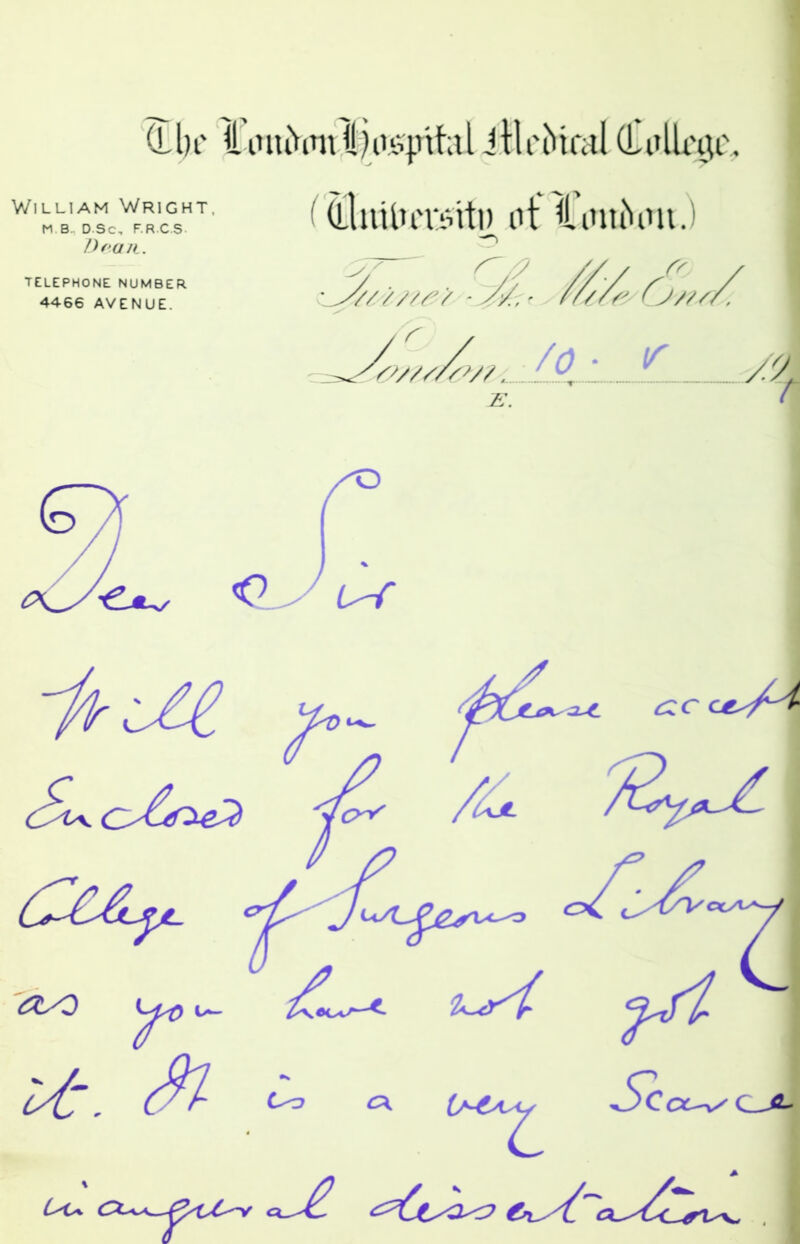 The London Hospital Medical College,
(University of London.)
WILLIAM WRIGHT,
M.B., D.Sc., F.R.C.S.
Dean.
TELEPHONE NUMBER
4466 AVENUE.
Turner St. Mile End,
London, 10. V 19
E.
Dear Sir
Will you please accept
Enclosed for the Royal
College of Surgeons Library
as you have not got
it. It is a very Scarce
inaugural dissertation.